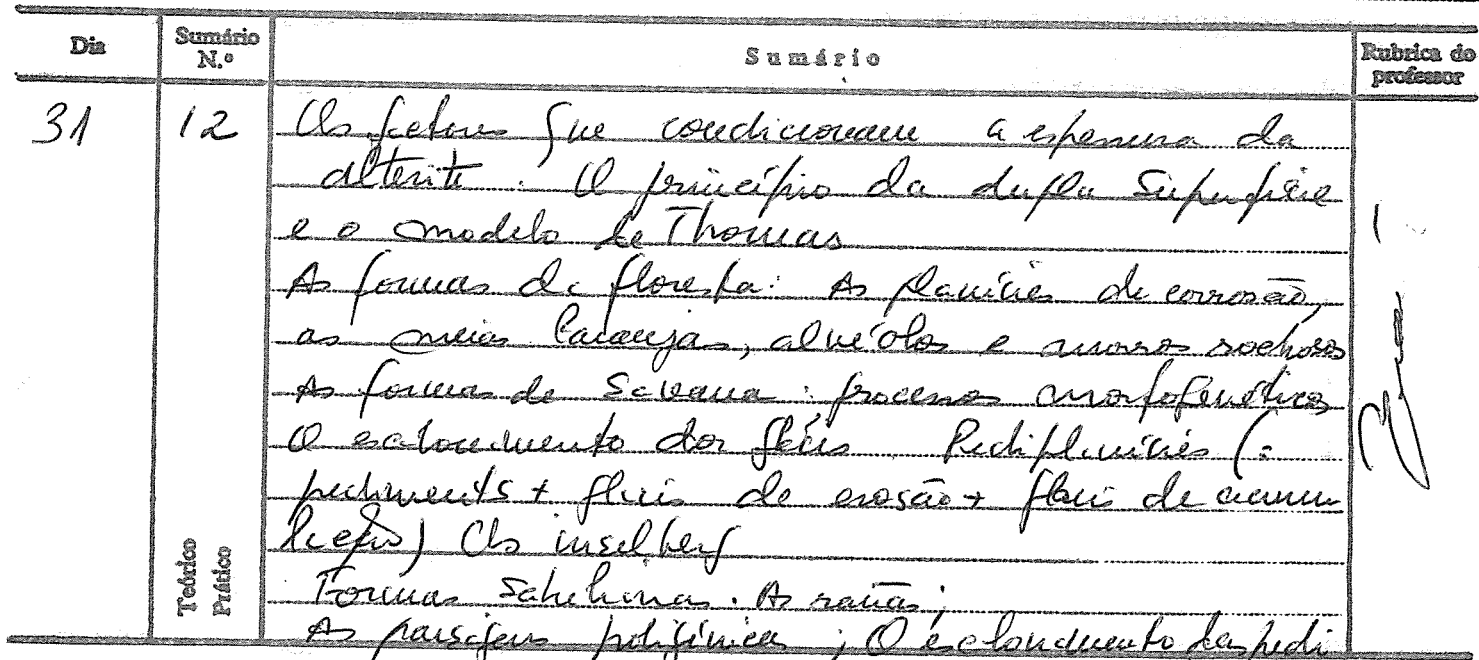 Dia Sumário N.º Sumário Rubrica do professor
31 12 Os factores que condicionam a espessura da
alterite. O princípio da dupla superfície
e o modelo de Thomas
As formas de floresta: As planícies de corrosão,
as meias laranjas, alvéolos e morros rochosos
As formas de Savana: processos morfogenéticos
O escalonamento dos glacis. Pediplanícies (=
pediments + glacis de erosão + glacis de acumu
lação) Os inselberg
Formas Sahelianas. As rañas;
As paisagens poligénicas; O escalonamento das pedi
Teórico
Prático